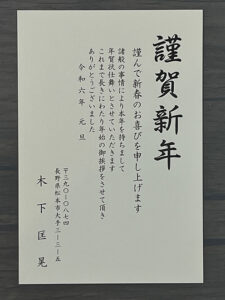 謹賀新年
謹んで新春のお喜びを申し上げます
諸般の事情により本年を持ちまして
年賀状仕舞いとさせていただきます
これまで長きにわたり年始の御挨拶をさせて頂き
ありがとうございました
令和六年 元旦
〒三九〇-〇八七四
長野県松本市大手三-三-五
木下匡晃